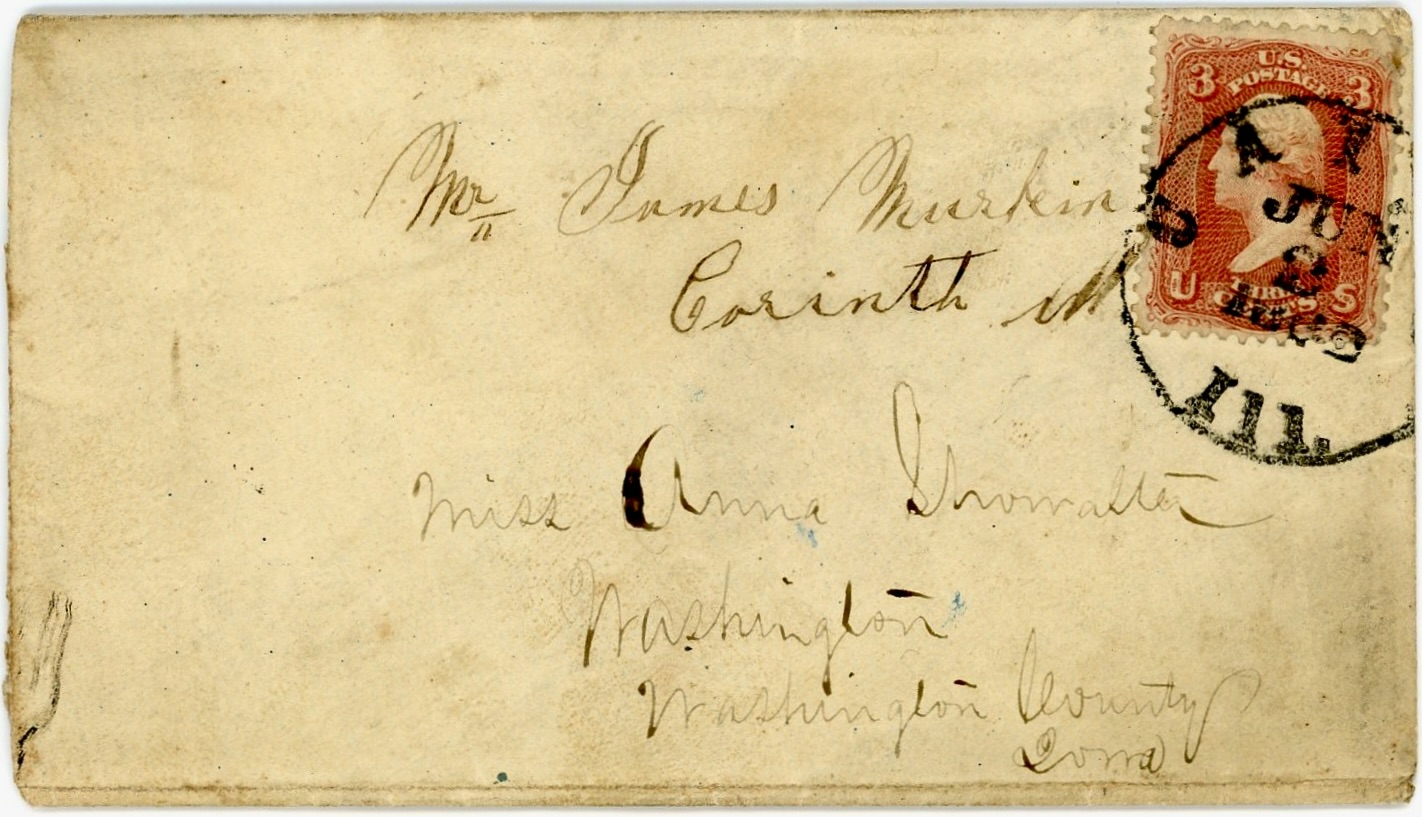 Mr James Murkin
Corinth M
Miss Anna Showalter
Washington
Washington County
Iowa
U.S.
POSTAGE
3 3
U S
CENTS
CA
JUN
2
Ill.